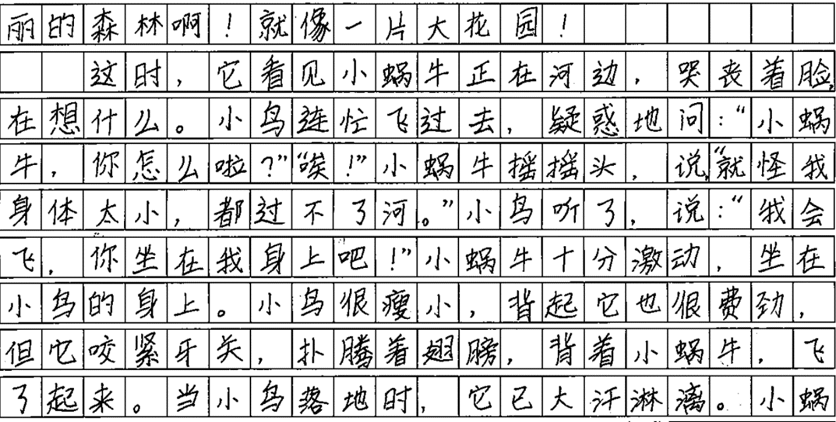 丽的森林啊！就像一片大花园！
这时，它看见小蜗牛正在河边，哭丧着脸，
在想什么。小鸟连忙飞过去，疑惑地问：“小蜗
牛，你怎么啦？”“唉！”小蜗牛摇摇头，说，“就怪我
身体太小，都过不了河。”小鸟听了，说：“我会
飞，你坐在我身上吧！”小蜗牛十分激动，坐在
小鸟的身上。小鸟很瘦小，背起它也很费劲，
但它咬紧牙关，扑腾着翅膀，背着小蜗牛，飞
了起来。当小鸟落地时，它已大汗淋漓。小蜗